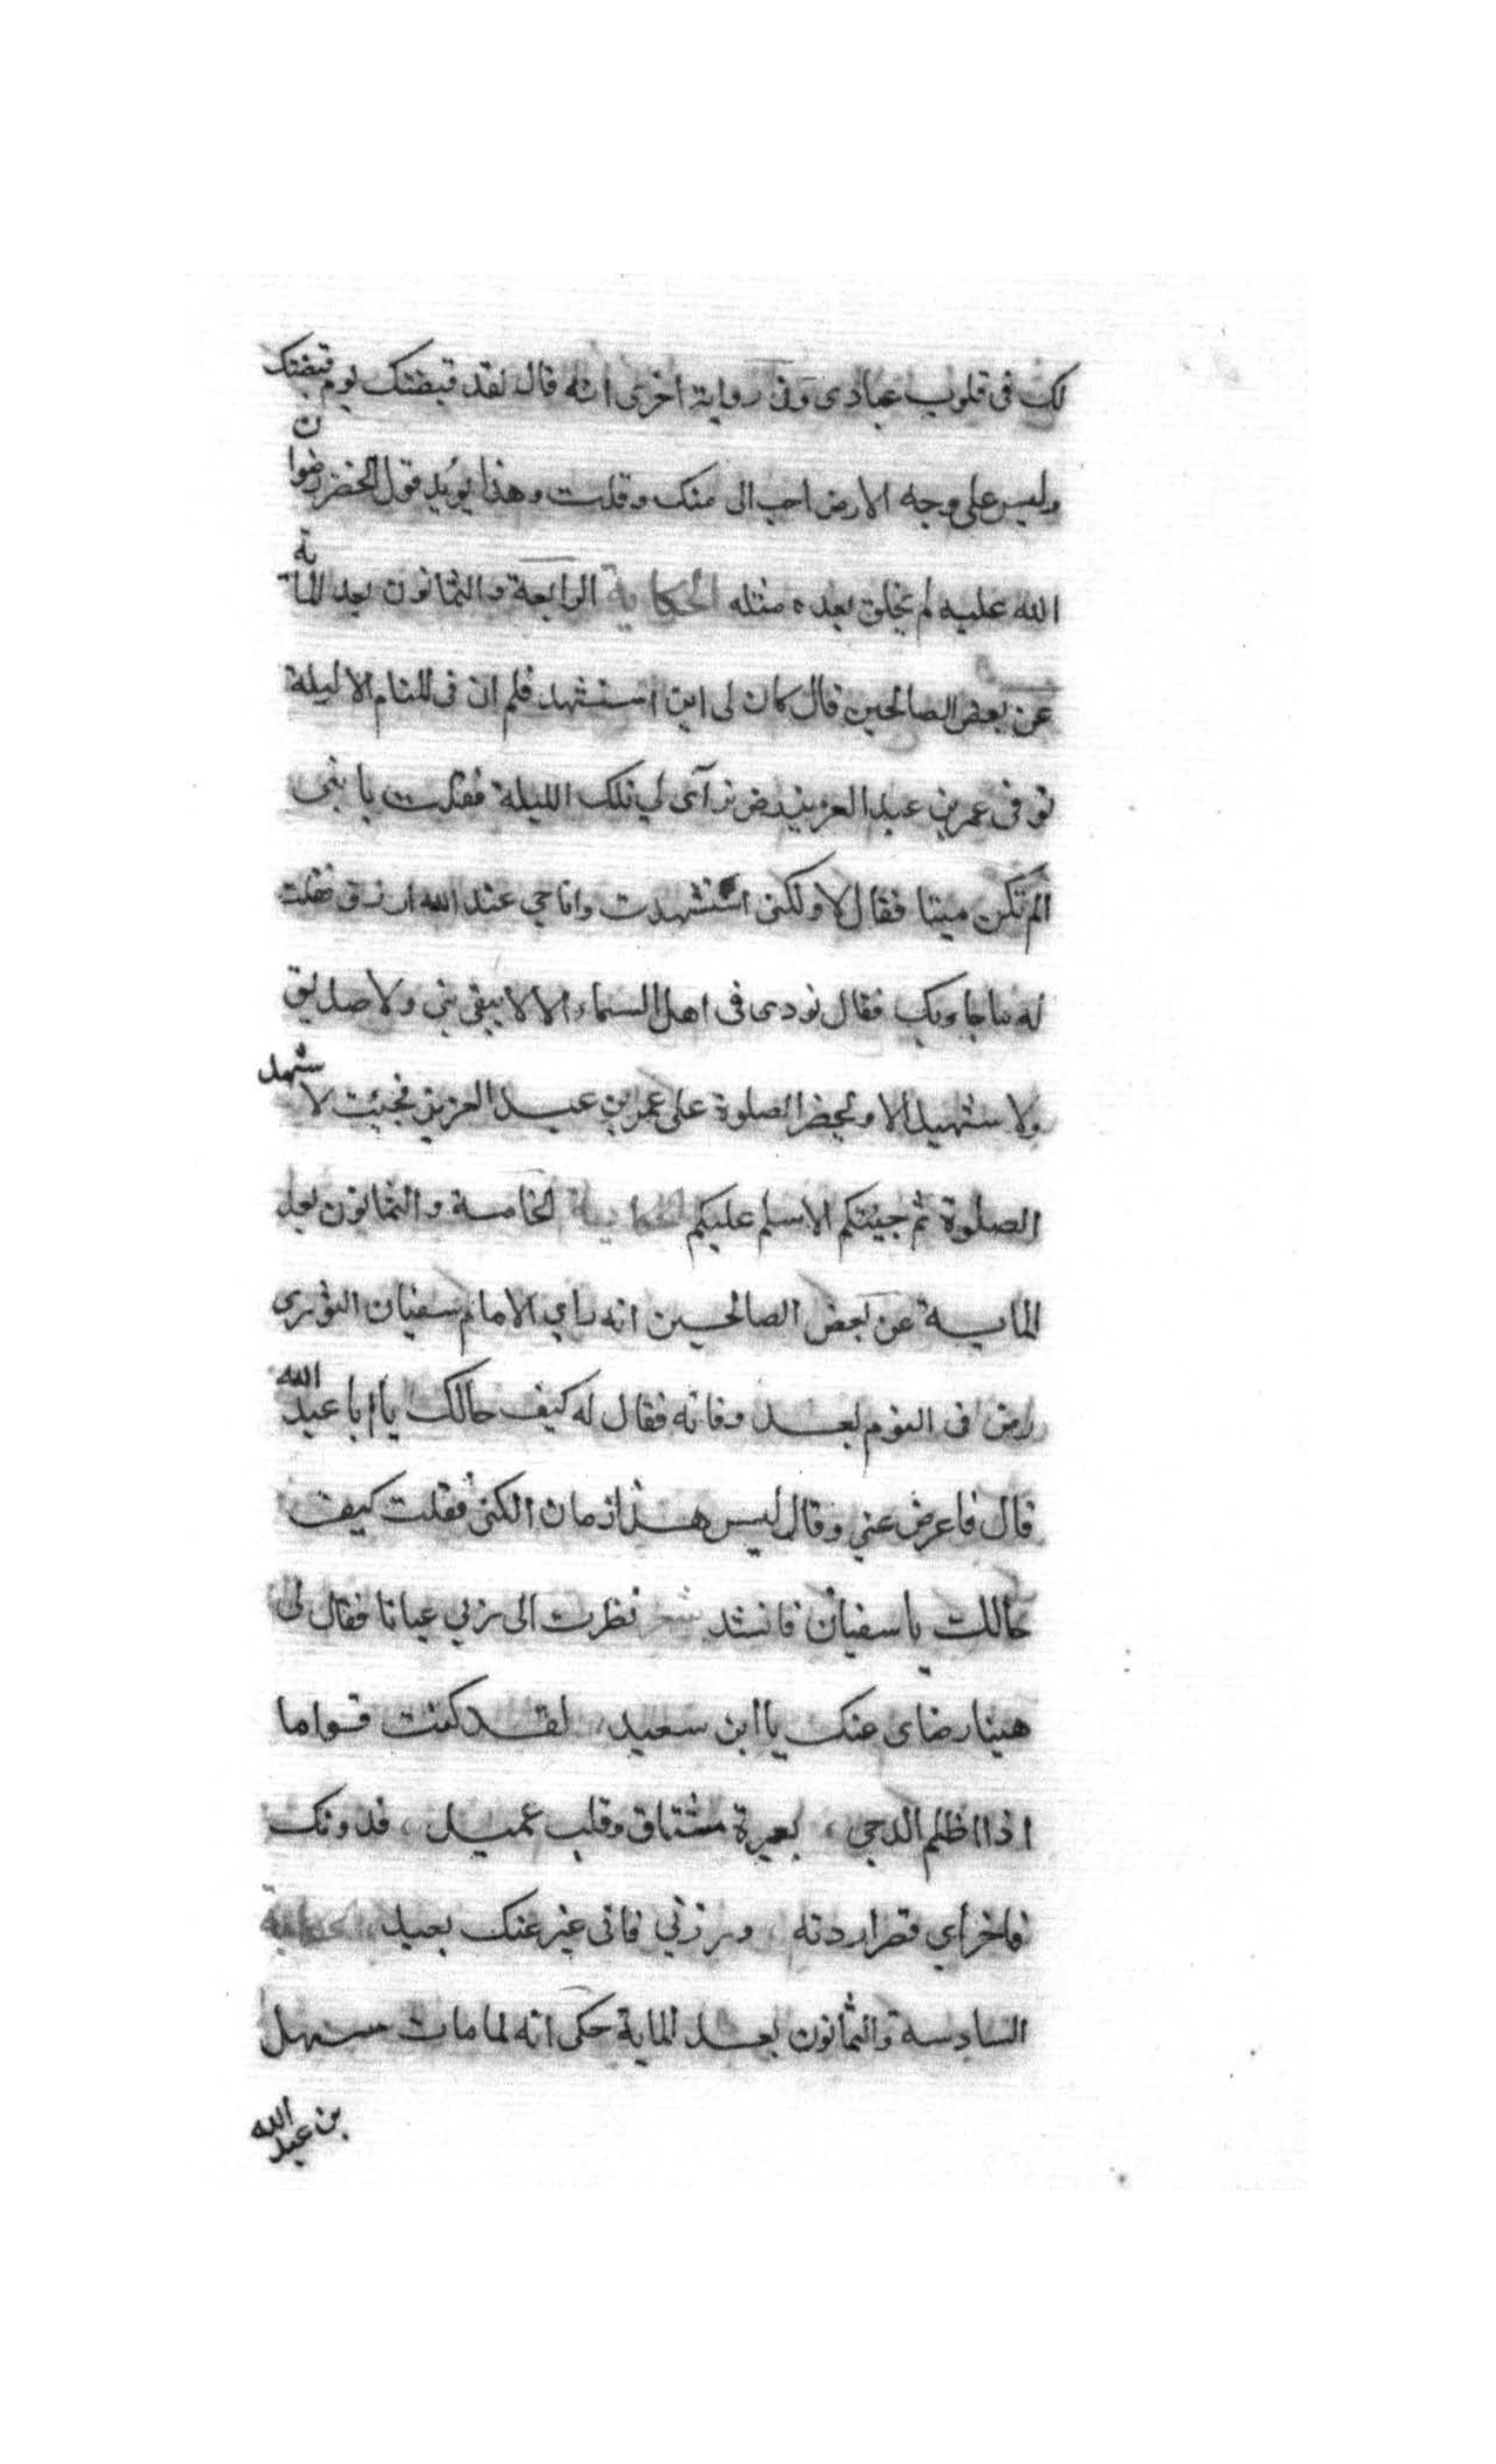 لك فى قلوب عبادى وفى رواية اخرى انه قال لقد قبضتك يوم قبضتك
وليس على وجه الارض احب الى منك وقلت وهذا يؤيد قول الخضر رضوان
الله عليه لم يخلق بعده مثله الحكاية الرابعة والثمانون بعد الماتة
عن بعض الصالحين قال كان لى ابن استشهد فلم ار فى المنام الا ليلة
توفى عمر بن عبد العزيز رض ترآى لي تلك الليلة فقلت يا بنى
الم تكن ميتا فقال لا ولكنى استشهدت وانا حي عند الله ارزق فقلت
له ما جاء بك فقال نودى فى اهل السماء الا لا يبقى نبي ولا صديق
ولا شهيد الا ويحضر الصلوة على عمر بن عبد العزيز فجيئت لا شهد
الصلوة ثم جيئتكم لا سلم عليكم الحكاية الخامسة والثمانون بعد
الماية عن بعض الصالحين انه راي الامام سفيان الثورى
رض فى النوم بعد وفاته فقال له كيف حالك يا ابا عبد الله
قال فاعرض عني وقال ليس هذا زمان الكنى فقلت كيف
حالك يا سفيان فانشد شعر نظرت الى ربي عيانا فقال لى
هنيا رضاى عنك يا ابن سعيد، لقد كنت قواما
اذا اظلم الدجي، بعبرة مشتاق وقلب عميد، فدونك
فاختر اي قصر اردته، وزرنى فانى غير عنك بعيد، الحكاية
السادسة والثمانون بعد الماية حكى انه لما مات سهل
بن عبد الله